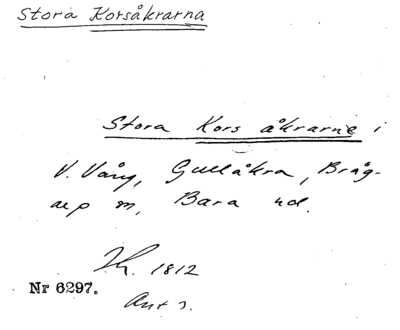 Stora Korsåkrarna
Stora Kors åkrarne i
V. Vång, Gullåkra, Bråg-
arp m, Bara hd.
Sk. 1812
Nr 6297.
Akt 3.